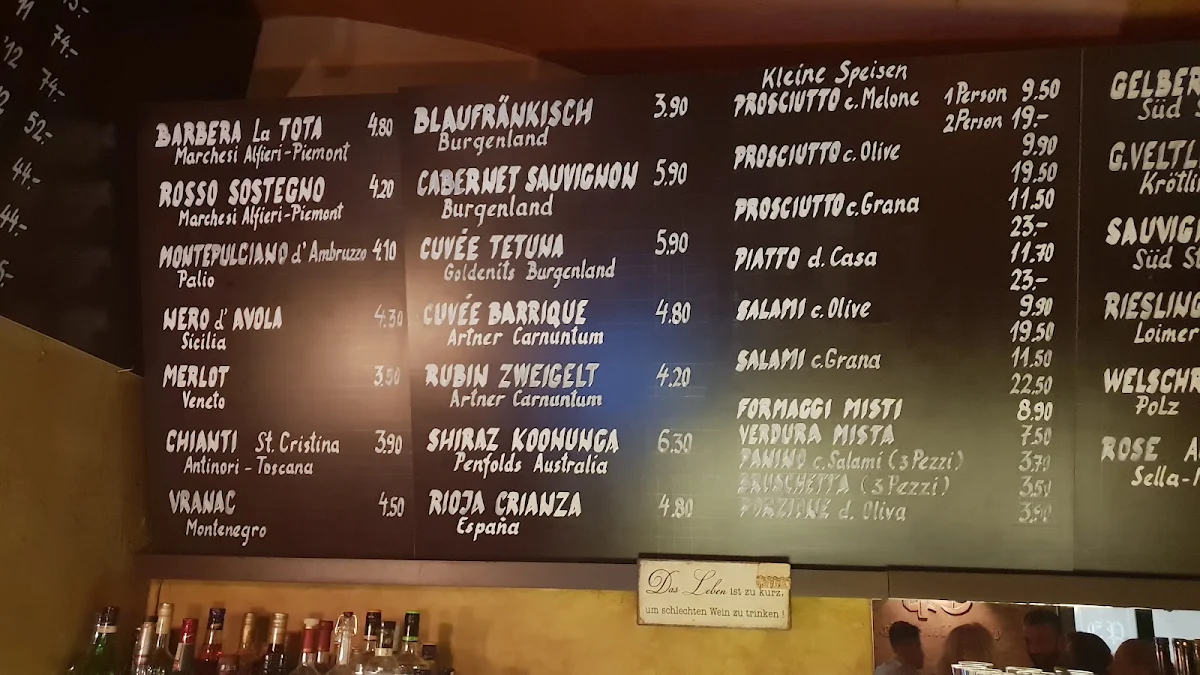 74.-
74.-
52.-
44.-
44.-
BARBERA La TOTA 4.80
Marchesi Alfieri-Piemont
ROSSO SOSTEGNO 4.20
Marchesi Alfieri-Piemont
MONTEPULCIANO d'Ambruzzo 4.10
Palio
NERO d'AVOLA 4.30
Sicilia
MERLOT 3.50
Veneto
CHIANTI St. Cristina 3.90
Antinori - Toscana
VRANAC 4.50
Montenegro
BLAUFRÄNKISCH 3.90
Burgenland
CABERNET SAUVIGNON 5.90
Burgenland
CUVÉE TETUNA 5.90
Goldenits Burgenland
CUVÉE BARRIQUE 4.80
Artner Carnuntum
RUBIN ZWEIGELT 4.20
Artner Carnuntum
SHIRAZ KOONUNGA 6.30
Penfolds Australia
RIOJA CRIANZA 4.80
España
Kleine Speisen
PROSCIUTTO c. Melone 1 Person 9.50
2 Person 19.-
PROSCIUTTO c. Olive 9.90
19.50
PROSCIUTTO c. Grana 11.50
23.-
PIATTO d. Casa 11.70
23.-
SALAMI c. Olive 9.90
19.50
SALAMI c. Grana 11.50
22.50
FORMAGGI MISTI 8.90
VERDURA MISTA 7.50
PANINO c. Salami (3 Pezzi) 3.70
BRUSCHETTA (3 Pezzi) 3.50
PORZIONE d. Oliva 3.90
GELBER
Süd
G.VELTL
Krötl
SAUVIG
Süd St
RIESLING
Loimer
WELSCHR
Polz
ROSE
Sella-
Das Leben ist zu kurz,
um schlechten Wein zu trinken !